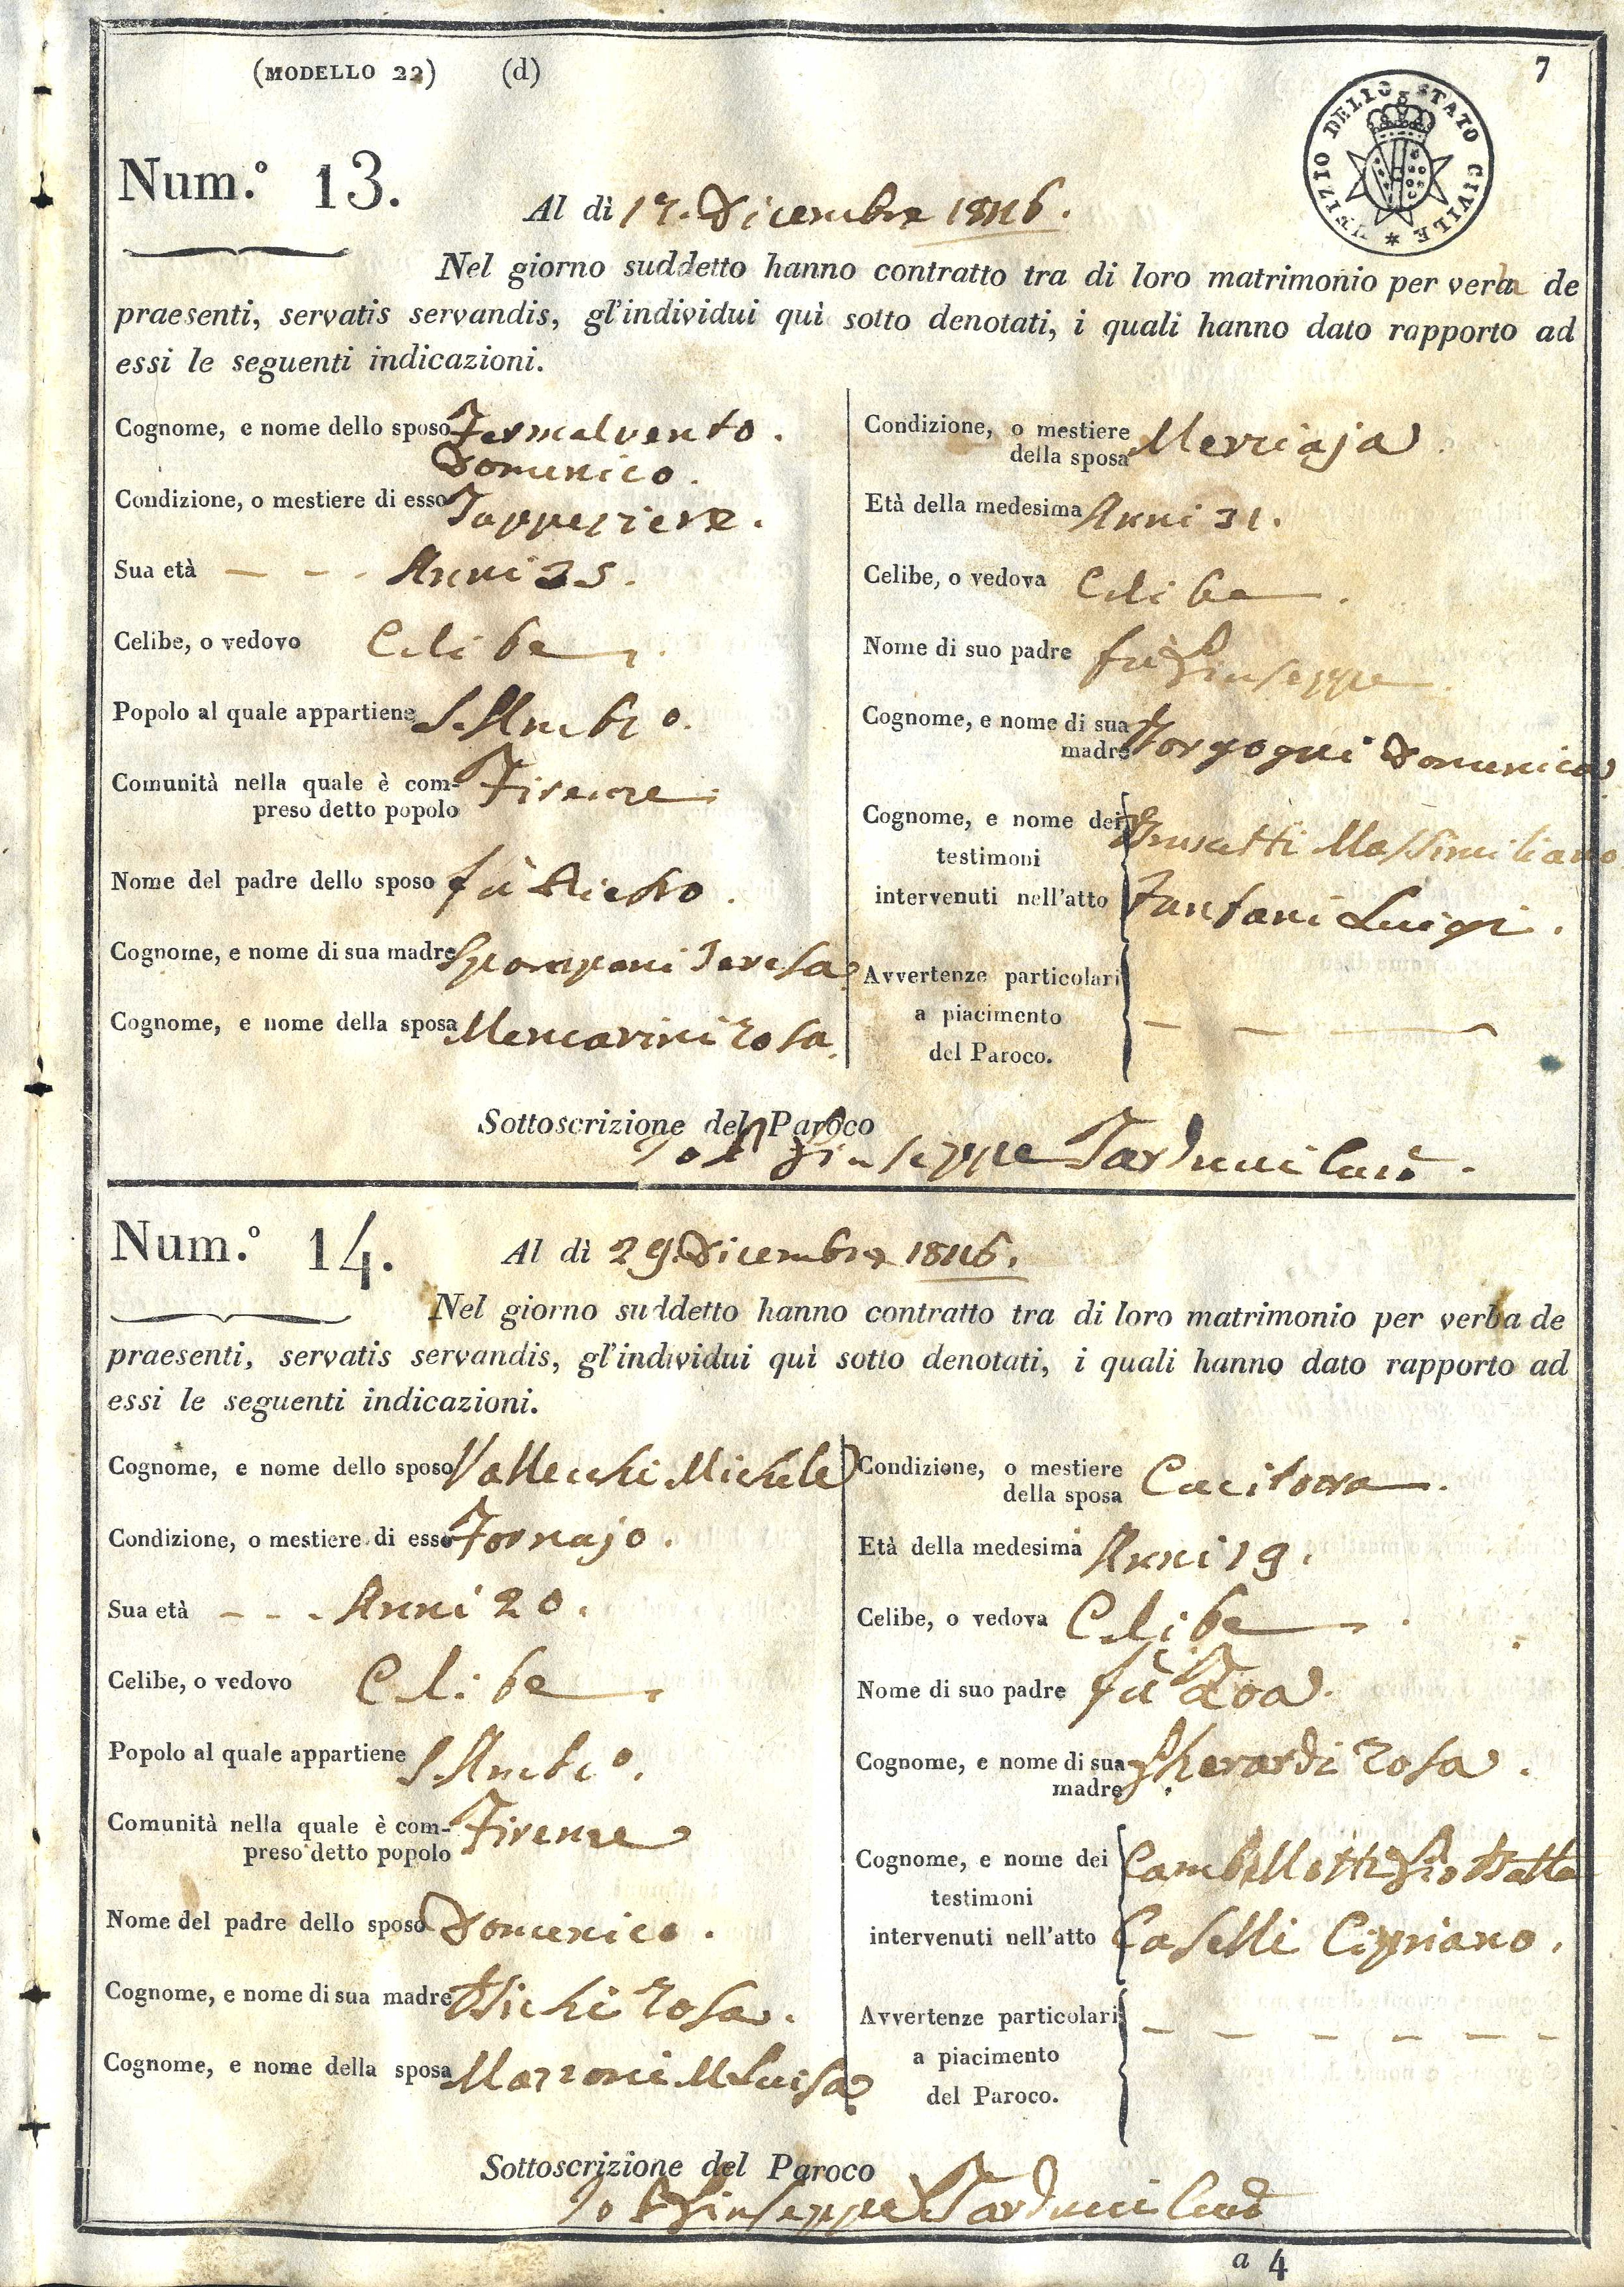 (MODELLO 22) (d) 7
UFIZIO DELLO STATO CIVILE
Num.º 13.
Al dì 17. Dicembre 1816.
Nel giorno suddetto hanno contratto tra di loro matrimonio per verba de
praesenti, servatis servandis, gl'individui quì sotto denotati, i quali hanno dato rapporto ad
essi le seguenti indicazioni.
Cognome, e nome dello sposo Fermalvento.
Domenico.
Condizione, o mestiere di esso Tappeziere.
Sua età - - - Anni 25.
Celibe, o vedovo Celibe
Popolo al quale appartiene S. Ambrº.
Comunità nella quale è com- Firenze
preso detto popolo
Nome del padre dello sposo fù Pietro.
Cognome, e nome di sua madre Teresa
Cognome, e nome della sposa Mencarini Rosa.
Condizione, o mestiere Merciaja
della sposa
Età della medesima Anni 31.
Celibe, o vedova Celibe
Nome di suo padre fù Giuseppe
Cognome, e nome di sua
madre Domenica
Cognome, e nome dei Massimiliano
testimoni
intervenuti nell'atto Fanfani Luigi.
Avvertenze particolari
a piacimento
del Paroco.
Sottoscrizione del Paroco
Io P. Giuseppe Tarducci Curº.
Num.º 14.
Al dì 29. Dicembre 1816.
Nel giorno suddetto hanno contratto tra di loro matrimonio per verba de
praesenti, servatis servandis, gl'individui quì sotto denotati, i quali hanno dato rapporto ad
essi le seguenti indicazioni.
Cognome, e nome dello sposo Vallecchi Michele
Condizione, o mestiere di esso Fornajo.
Sua età - - - Anni 20.
Celibe, o vedovo Celibe
Popolo al quale appartiene S. Ambrº.
Comunità nella quale è com- Firenze
preso detto popolo
Nome del padre dello sposo Domenico.
Cognome, e nome di sua madre Bichi Rosa.
Cognome, e nome della sposa Mazzoni M. Luisa
Condizione, o mestiere Cucitora.
della sposa
Età della medesima Anni 19.
Celibe, o vedova Celibe
Nome di suo padre fù
Cognome, e nome di sua Gherardi Rosa.
madre
Cognome, e nome dei Cambellotti Gio Batta
testimoni
intervenuti nell'atto Caselli Cipriano.
Avvertenze particolari
a piacimento
del Paroco.
Sottoscrizione del Paroco
Io P. Giuseppe Tarducci Curº
a 4